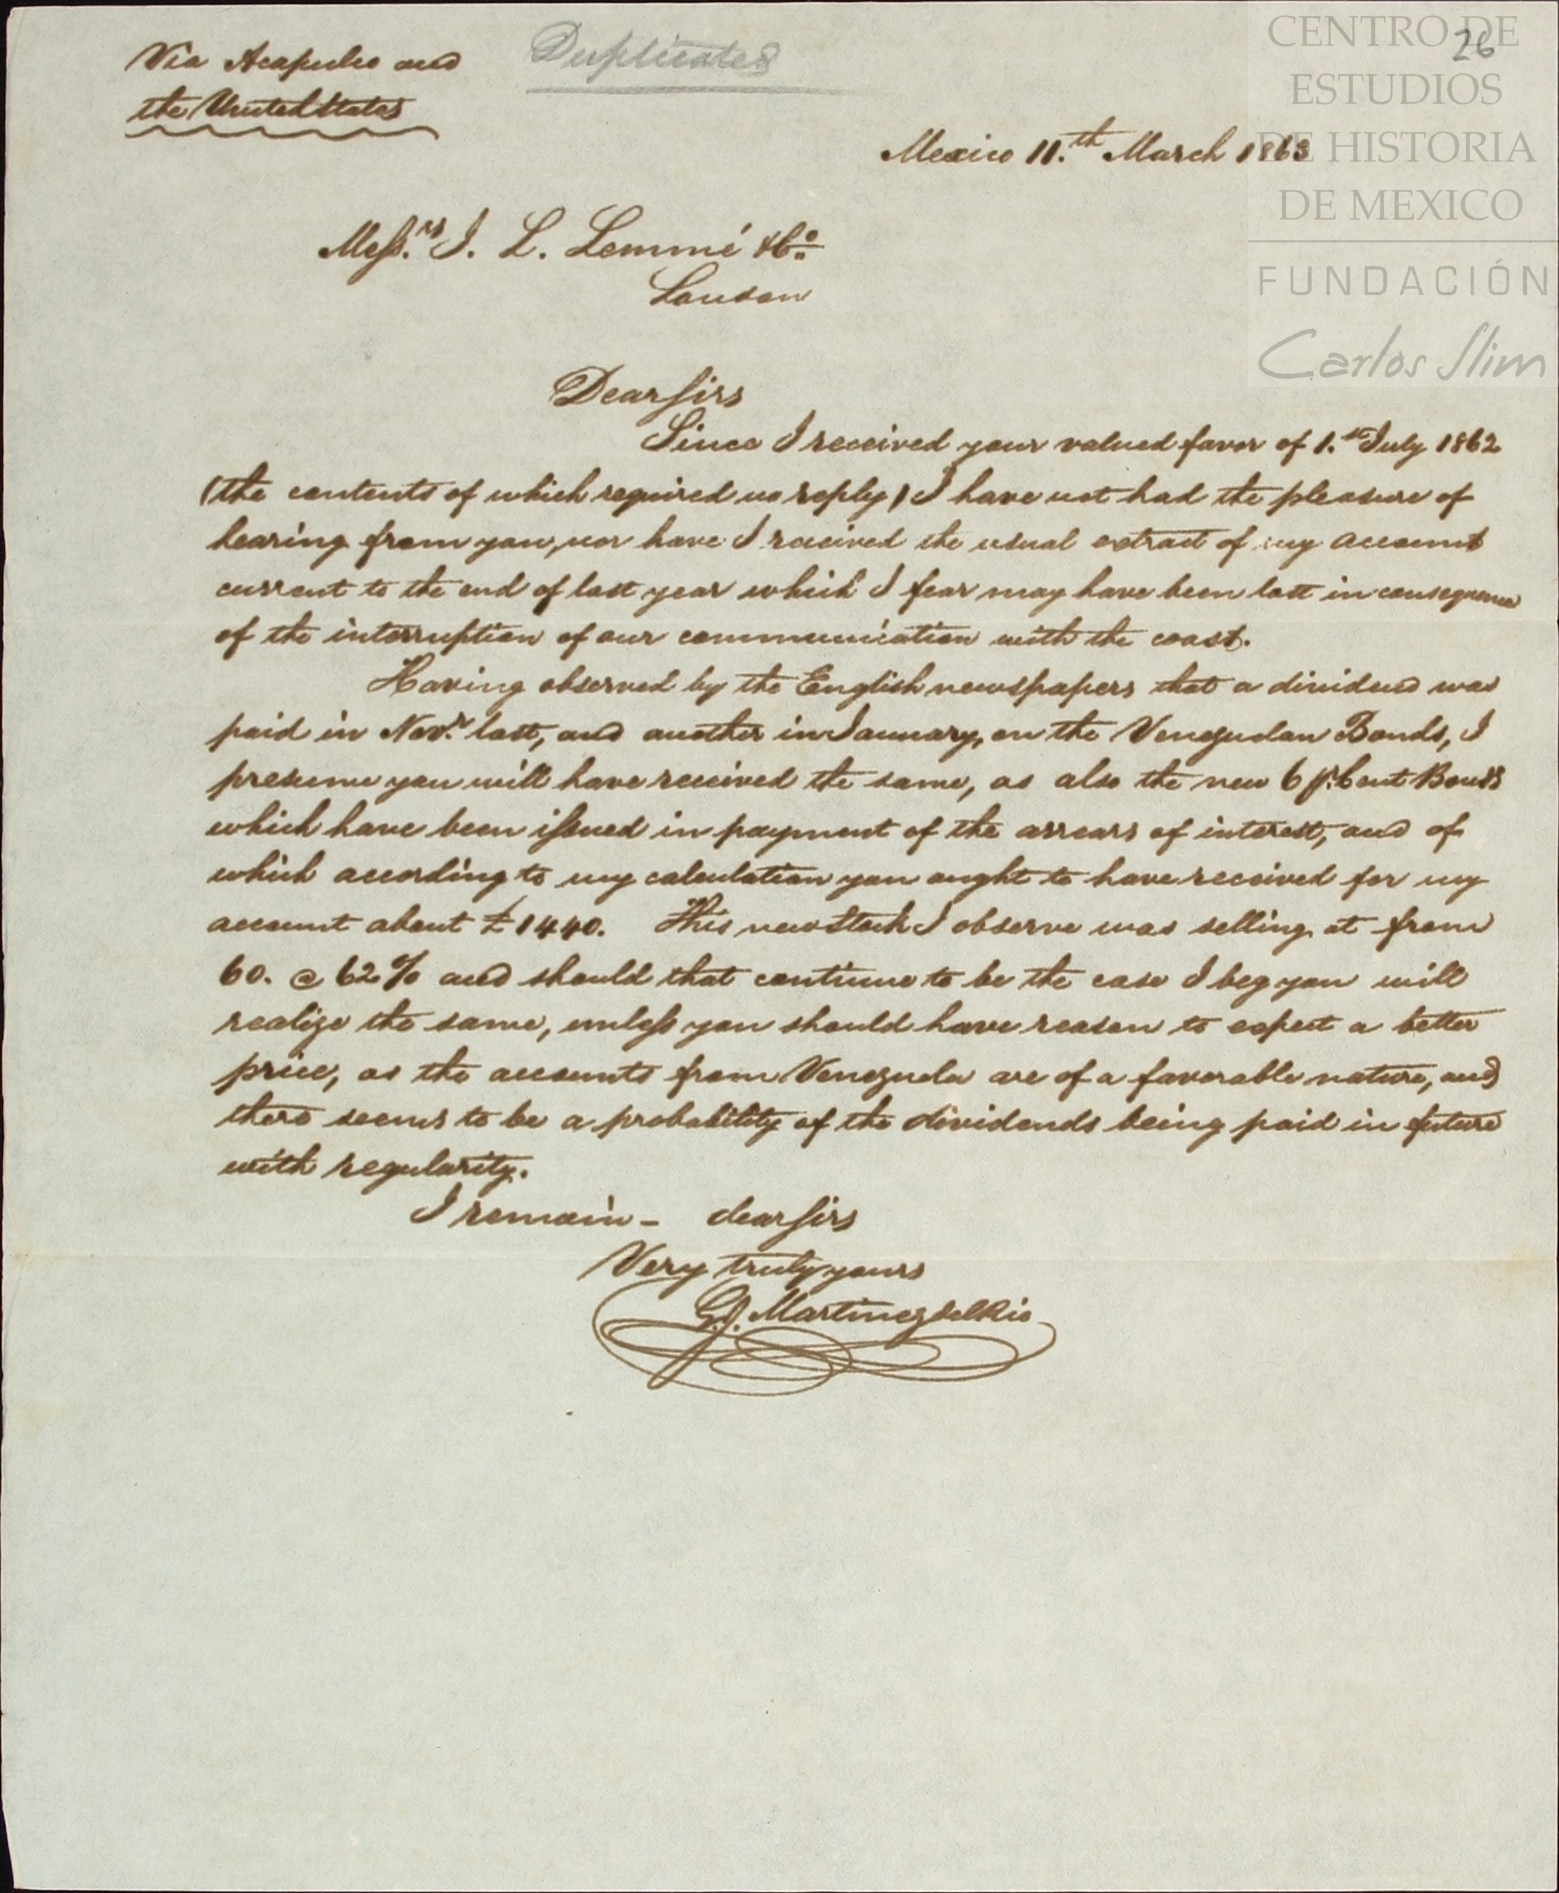 Via Acapulco and
the United States
Duplicate
26
Mexico 11.th March 1863
Mess.rs J. L. Lemmé & Co
London
Dear Sirs
Since I received your valued favor of 1.st July 1862
(the contents of which required no reply) I have not had the pleasure of
hearing from you, nor have I received the usual extract of my account
current to the end of last year which I fear may have been lost in consequence
of the interruption of our communication with the coast.
Having observed by the English newspapers that a dividend was
paid in Nov.r last, and another in January, on the Venezuelan Bonds, I
presume you will have received the same, as also the new 6 p. Cent Bonds
which have been issued in payment of the arrears of interest, and of
which according to my calculation you ought to have received for my
account about £1440. This new Stock I observe was selling at from
60. @ 62% and should that continue to be the case I beg you will
realize the same, unless you should have reason to expect a better
price, as the accounts from Venezuela are of a favorable nature, and
there seems to be a probability of the dividends being paid in future
with regularity.
I remain - dear sirs
Very truly yours
G. J. Martinez del Rio
CENTRO DE
ESTUDIOS
DE HISTORIA
DE MEXICO
FUNDACIÓN
Carlos Slim